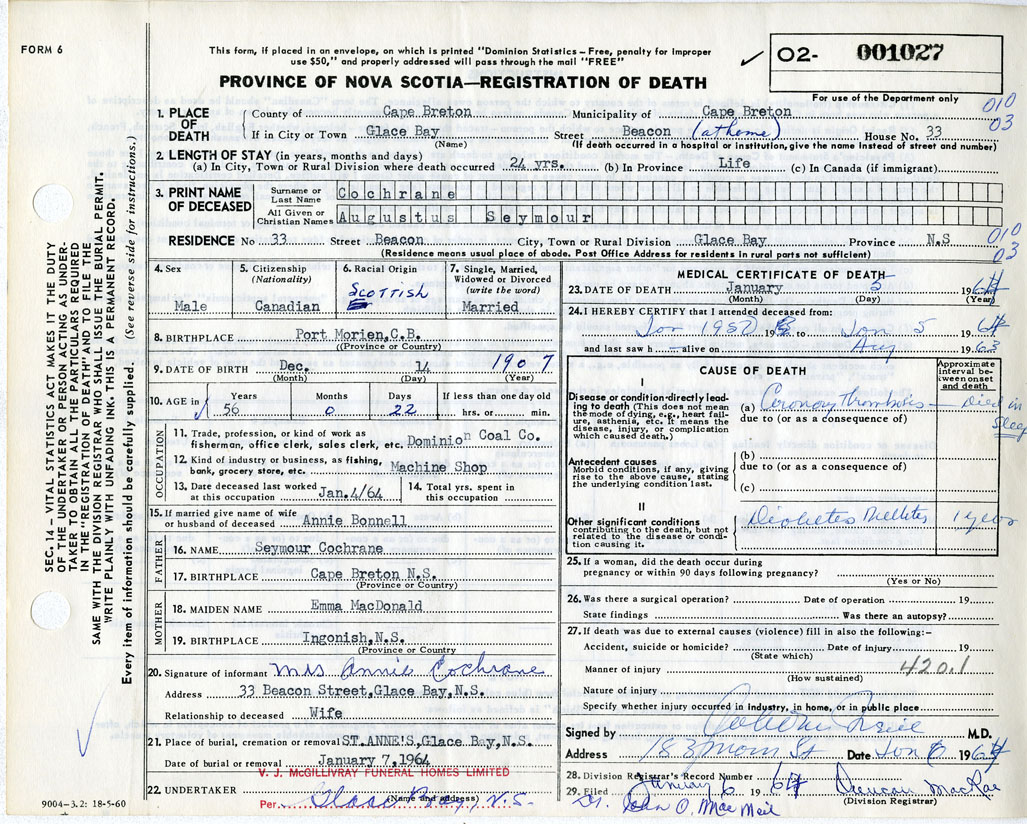 FORM 6
This form, if placed in an envelope, on which is printed "Dominion Statistics – Free, penalty for improper
use $50," and properly addressed will pass through the mail "FREE"
PROVINCE OF NOVA SCOTIA—REGISTRATION OF DEATH
✓ 02- 001027
For use of the Department only
010
03
1. PLACE OF DEATH
County of Cape Breton Municipality of Cape Breton
If in City or Town Glace Bay Street Beacon (at home) House No. 33
(Name) (If death occurred in a hospital or institution, give the name instead of street and number)
2. LENGTH OF STAY (in years, months and days)
(a) In City, Town or Rural Division where death occurred 24 yrs. (b) In Province Life (c) In Canada (if immigrant)
3. PRINT NAME OF DECEASED
Surname or Last Name Cochrane
All Given or Christian Names Augustus Seymour
RESIDENCE No 33 Street Beacon City, Town or Rural Division Glace Bay Province N.S
(Residence means usual place of abode. Post Office Address for residents in rural parts not sufficient)
010
03
4. Sex
Male
5. Citizenship
(Nationality)
Canadian
6. Racial Origin
SCOTTISH
7. Single, Married,
Widowed or Divorced
(write the word)
Married
8. BIRTHPLACE Port Morien, C.B.
(Province or Country)
9. DATE OF BIRTH Dec. 14 1907
(Month) (Day) (Year)
10. AGE in
Years Months Days If less than one day old
56 0 22 hrs. or min.
OCCUPATION
11. Trade, profession, or kind of work as
fisherman, office clerk, sales clerk, etc. Dominion Coal Co.
12. Kind of industry or business, as fishing,
bank, grocery store, etc. Machine Shop
13. Date deceased last worked
at this occupation Jan. 4/64
14. Total yrs. spent in
this occupation
15. If married give name of wife
or husband of deceased Annie Bonnell
FATHER
16. NAME Seymour Cochrane
17. BIRTHPLACE Cape Breton N.S.
(Province or Country)
MOTHER
18. MAIDEN NAME Emma MacDonald
19. BIRTHPLACE Ingonish, N.S.
(Province or Country)
20. Signature of informant Mrs Annie Cochrane
Address 33 Beacon Street, Glace Bay, N.S.
Relationship to deceased Wife
21. Place of burial, cremation or removal ST. ANNE'S, Glace Bay, N.S.
Date of burial or removal January 7, 1964
V. J. McGILLIVRAY FUNERAL HOMES LIMITED
22. UNDERTAKER
(Name and address)
Per Glace Bay, N.S.
MEDICAL CERTIFICATE OF DEATH
23. DATE OF DEATH January 5 1964
(Month) (Day) (Year)
24. I HEREBY CERTIFY that I attended deceased from:
Jan 19 to Jan 5 1964
and last saw h alive on Aug 1963
CAUSE OF DEATH
Approximate
interval be-
tween onset
and death
I
Disease or condition directly lead-
ing to death (This does not
mean the mode of dying, e.g., heart fail-
ure, asthenia, etc. It means the
disease, injury, or complication
which caused death.)
(a) Coronary thrombosis – Died in
Sleep
due to (or as a consequence of)
Antecedent causes
Morbid conditions, if any, giving
rise to the above cause, stating
the underlying condition last.
(b)
due to (or as a consequence of)
(c)
II
Other significant conditions
contributing to the death, but not
related to the disease or condi-
tion causing it.
Diabetes Mellitus 1 year
25. If a woman, did the death occur during
pregnancy or within 90 days following pregnancy?
(Yes or No)
26. Was there a surgical operation? Date of operation 19
State findings Was there an autopsy?
27. If death was due to external causes (violence) fill in also the following:–
Accident, suicide or homicide? Date of injury 19
(State which)
Manner of injury 420.1
(How sustained)
Nature of injury
Specify whether injury occurred in industry, in home, or in public place
Signed by M.D.
Address 183 Main St Date Jan 6 1964
28. Division Registrar's Record Number
29. Filed January 6 1964 Duncan MacRae
(Division Registrar)
Dr. John O. MacNeil
SEC. 14 – VITAL STATISTICS ACT MAKES IT THE DUTY
OF THE UNDERTAKER OR PERSON ACTING AS UNDER-
TAKER TO OBTAIN ALL THE PARTICULARS REQUIRED
IN THE "REGISTRATION OF DEATH" AND TO FILE THE
SAME WITH THE DIVISION REGISTRAR WHO SHALL ISSUE THE BURIAL PERMIT.
WRITE PLAINLY WITH UNFADING INK. THIS IS A PERMANENT RECORD.
Every item of information should be carefully supplied. (See reverse side for instructions.)
9004–3.2: 18-5-60